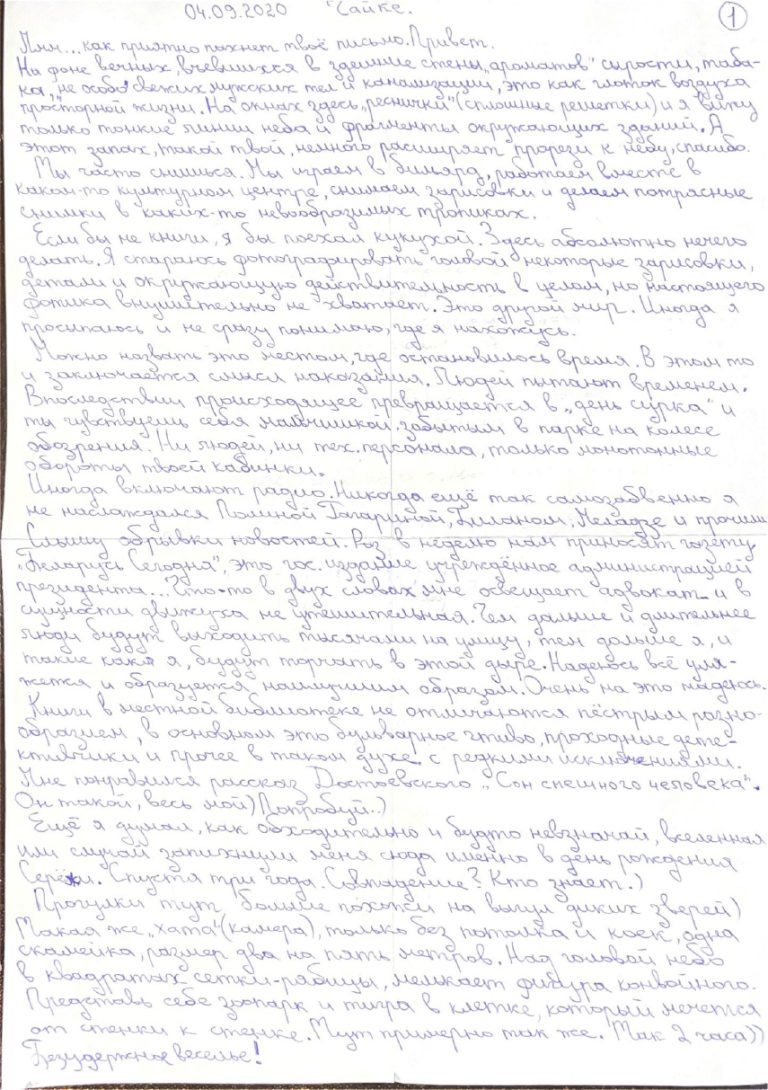 04.09.2020 Чайке. 1
Ммм... как приятно пахнет твоё письмо. Привет.
На фоне вечных, въевшихся в здешние стены, „ароматов" сырости, таба-
ка, не особо свежих мужских тел и канализации, это как глоток воздуха
просторной жизни. На окнах здесь „реснички" (сплошные решетки) и я вижу
только тонкие линии неба и фрагменты окружающих зданий. А
этот запах, такой твой, немного расширяет прорези к небу, спасибо.
Мы часто снишься. Мы играем в бильярд, работаем вместе в
каком-то культурном центре, снимаем зарисовки и делаем потрясные
снимки в каких-то невообразимых тропиках.
Если бы не книги, я бы поехал кукухой. Здесь абсолютно нечего
делать. Я стараюсь фотографировать головой некоторые зарисовки,
детали и окружающую действительность в целом, но настоящего
фотика внушительно не хватает. Это другой мир. Иногда я
просыпаюсь и не сразу понимаю, где я нахожусь.
Можно назвать это местом, где остановилось время. В этом то
и заключается смысл наказания. Людей пытают временем.
Впоследствии происходящее превращается в „день сурка" и
ты чувствуешь себя мальчишкой, забытым в парке на колесе
обозрения. Ни людей, ни тех. персонала, только монотонные
обороты твоей кабинки.
Иногда включают радио. Никогда ещё так самозабвенно я
не наслаждался Полиной Гагариной, Биланом, Меладзе и прочими
Слышу обрывки новостей. Раз в неделю нам приносят газету
„Беларусь Сегодня", это гос. издание учреждённое администрацией
президента... Что-то в двух словах мне освещает адвокат и в
сущности движуха не утешительная. Чем дальше и длительнее
люди будут выходить тысячами на улицу, тем дольше я, и
такие как я, будут торчать в этой дыре. Надеюсь всё уля-
жется и образуется наилучшим образом. Очень на это надеюсь.
Книги в местной библиотеке не отличаются пёстрым разно-
образием, в основном это бульварное чтиво, проходные дете-
ктивчики и прочее в таком духе с редкими исключениями.
Мне понравился рассказ Достоевского „Сон смешного человека".
Он такой, весь мой) Попробуй..)
Ещё я думал, как обходительно и будто невзначай, вселенная
или случай запихнули меня сюда именно в день рождения
Серёжи. Спустя три года. Совпадение? Кто знает.)
Прогулки тут больше похожи на выгул диких зверей)
Такая же „хата" (камера), только без потолка и коек, одна
скамейка, размер два на пять метров. Над головой небо
в квадратах сетки-рабицы, мелькает фигура конвойного.
Представь себе зоопарк и тигра в клетке, который мечется
от стенки к стенке. Тут примерно так же. Так 2 часа))
Безудержное веселье!